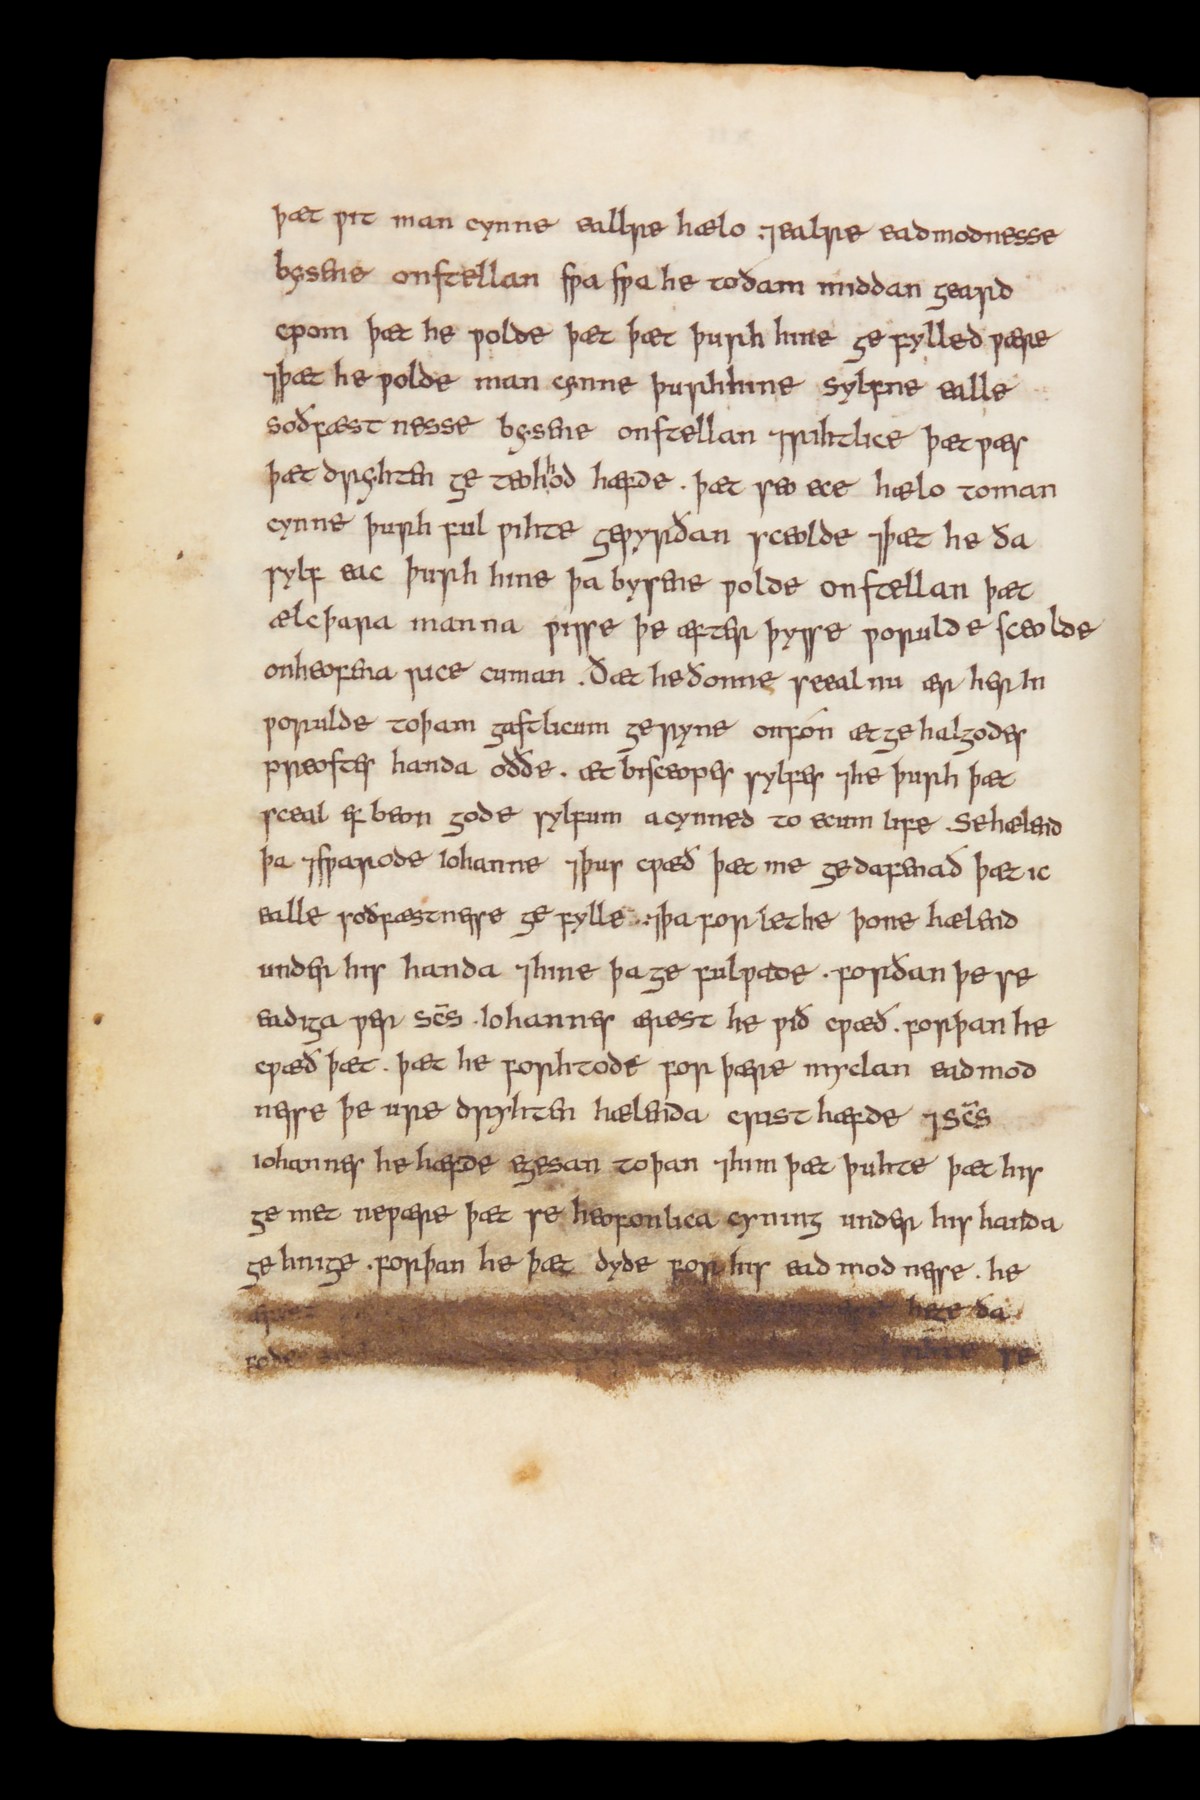 þæt ƿit man cynne eallre hælo ⁊ealre eadmodnesse
bysene onstellan sƿa sƿa he toðam middan geard
cƿom þæt he ƿolde þæt þæt þurh hine ge fylled ƿære
⁊þæt he ƿolde man cynne þurhhine sylfne ealle
soðfæst nesse bysene onstellan ⁊rihtlice þæt ƿæs
þæt dryhten ge teohhod hæfde . þæt seo ece hælo toman
cynne þurh ful ƿihte geƿyrðan sceolde ⁊þæt he ða
sylf eac þurh hine þa bysene ƿolde onstellan þæt
ælc þara manna ƿisse þe æfter þysse ƿorulde sceolde
onheofena rice cuman . Ðæt heðonne sceal nu ær her In
ƿorulde toþam gastlicum geryne onfón æt ge halgodes
preostes handa oððe . æt bisceopes sylfes ⁊he þurh þæt
sceal eft beon gode sylfum acynned to ecum life . Sehælend
þa ⁊sƿarode Iohanne ⁊þus cƿæð þæt me ge dafenað þæt ic
ealle soðfæstnesse ge fylle . ⁊þa for lethe þone hælend
under his handa ⁊hine þa ge fulƿade . forðan þe se
eadiga ƿer sc̄s . Iohannes ærest he ƿið cƿæð . forþan he
cƿæð þæt . þæt he forhtode for þære myclan eadmod
nesse þe ure dryhten hælenda crist hæfde ⁊ sc̄s
Iohannes he hæfde egesan toþan ⁊him þæt þuhte þæt his
ge met neƿære þæt se heofonlica cyning under his handa
ge hnige . forþan he þæt dyde for his eadmod nesse . he
hege ða
fode se